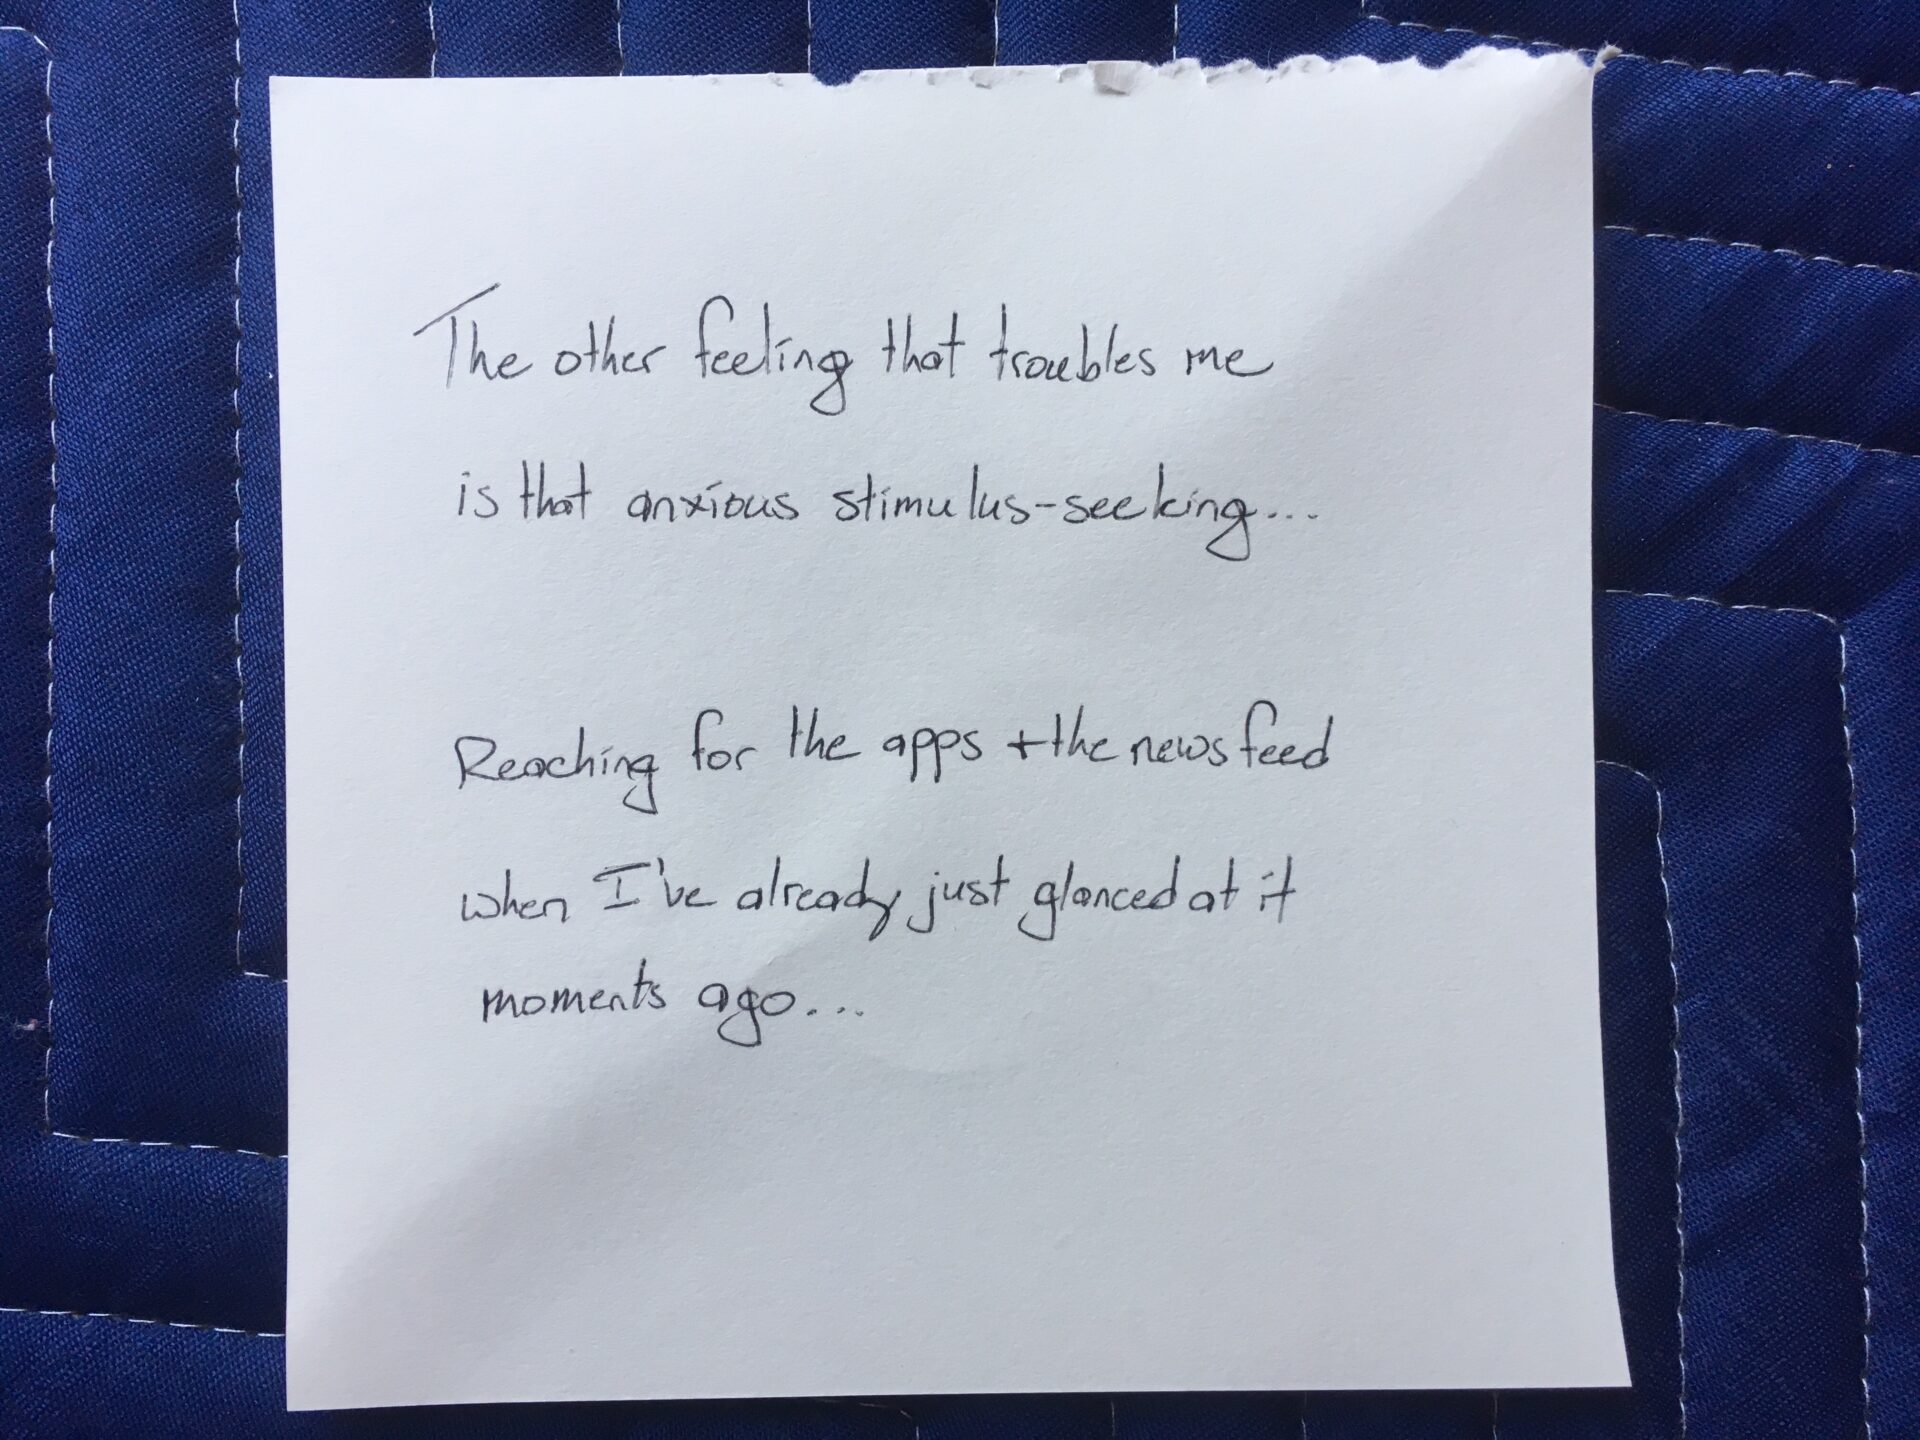 The other feeling that troubles me
is that anxious stimulus-seeking...
Reaching for the apps + the newsfeed
when I've already just glanced at it
moments ago...